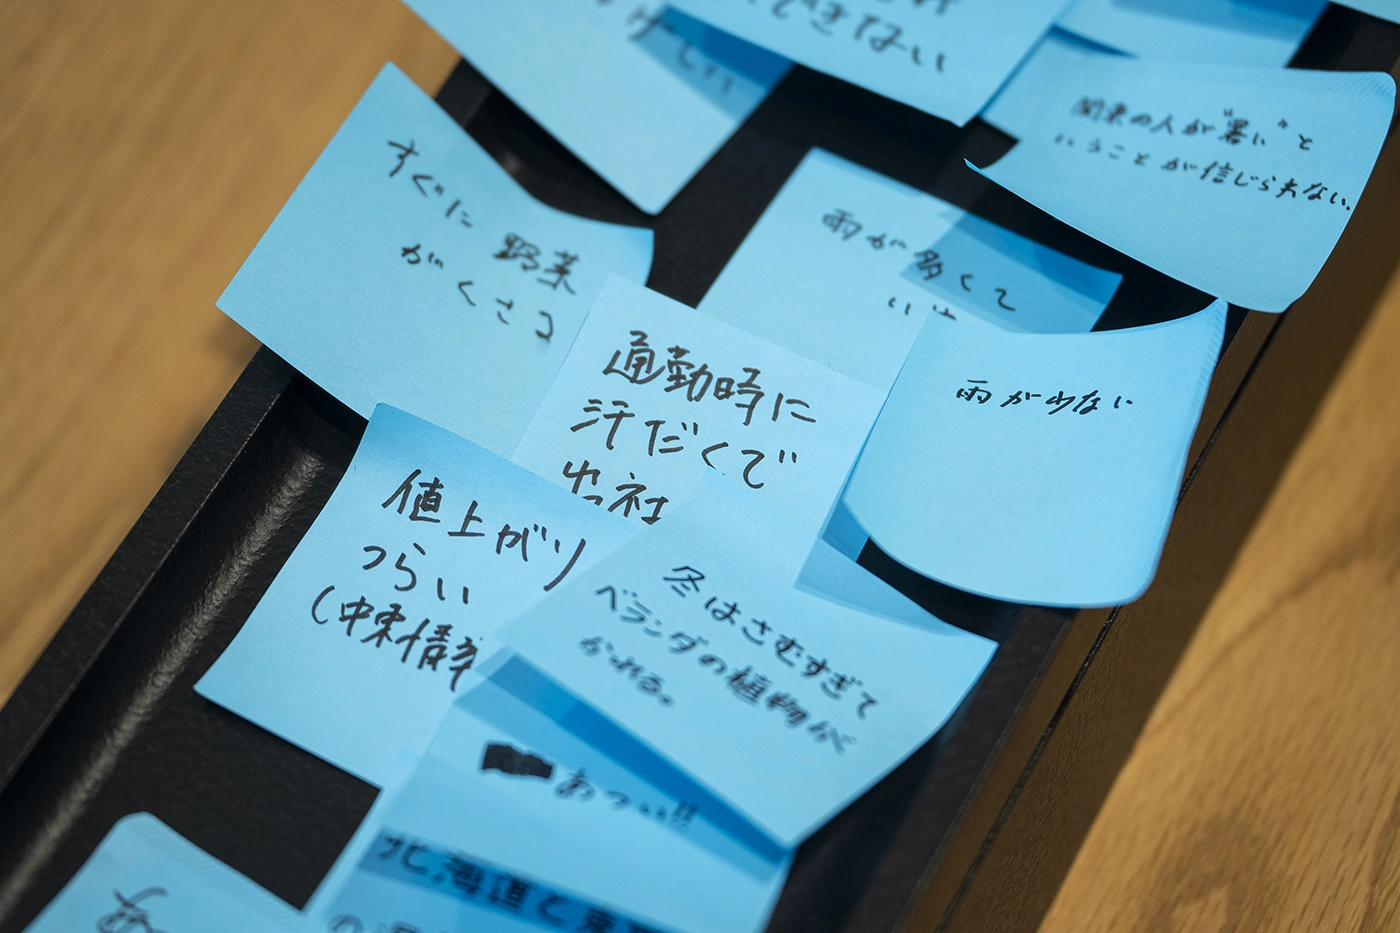 くできない
関東の人が"暑い"と
いうことが信じられない.
すぐに 野菜
がくさる
雨が多くて
雨が少ない
通勤時に
汗だくで
出社
値上がり
つらい
(中東情勢
冬はさむすぎて
ベランダの植物が
かれる。
あつい!!
北海道と東